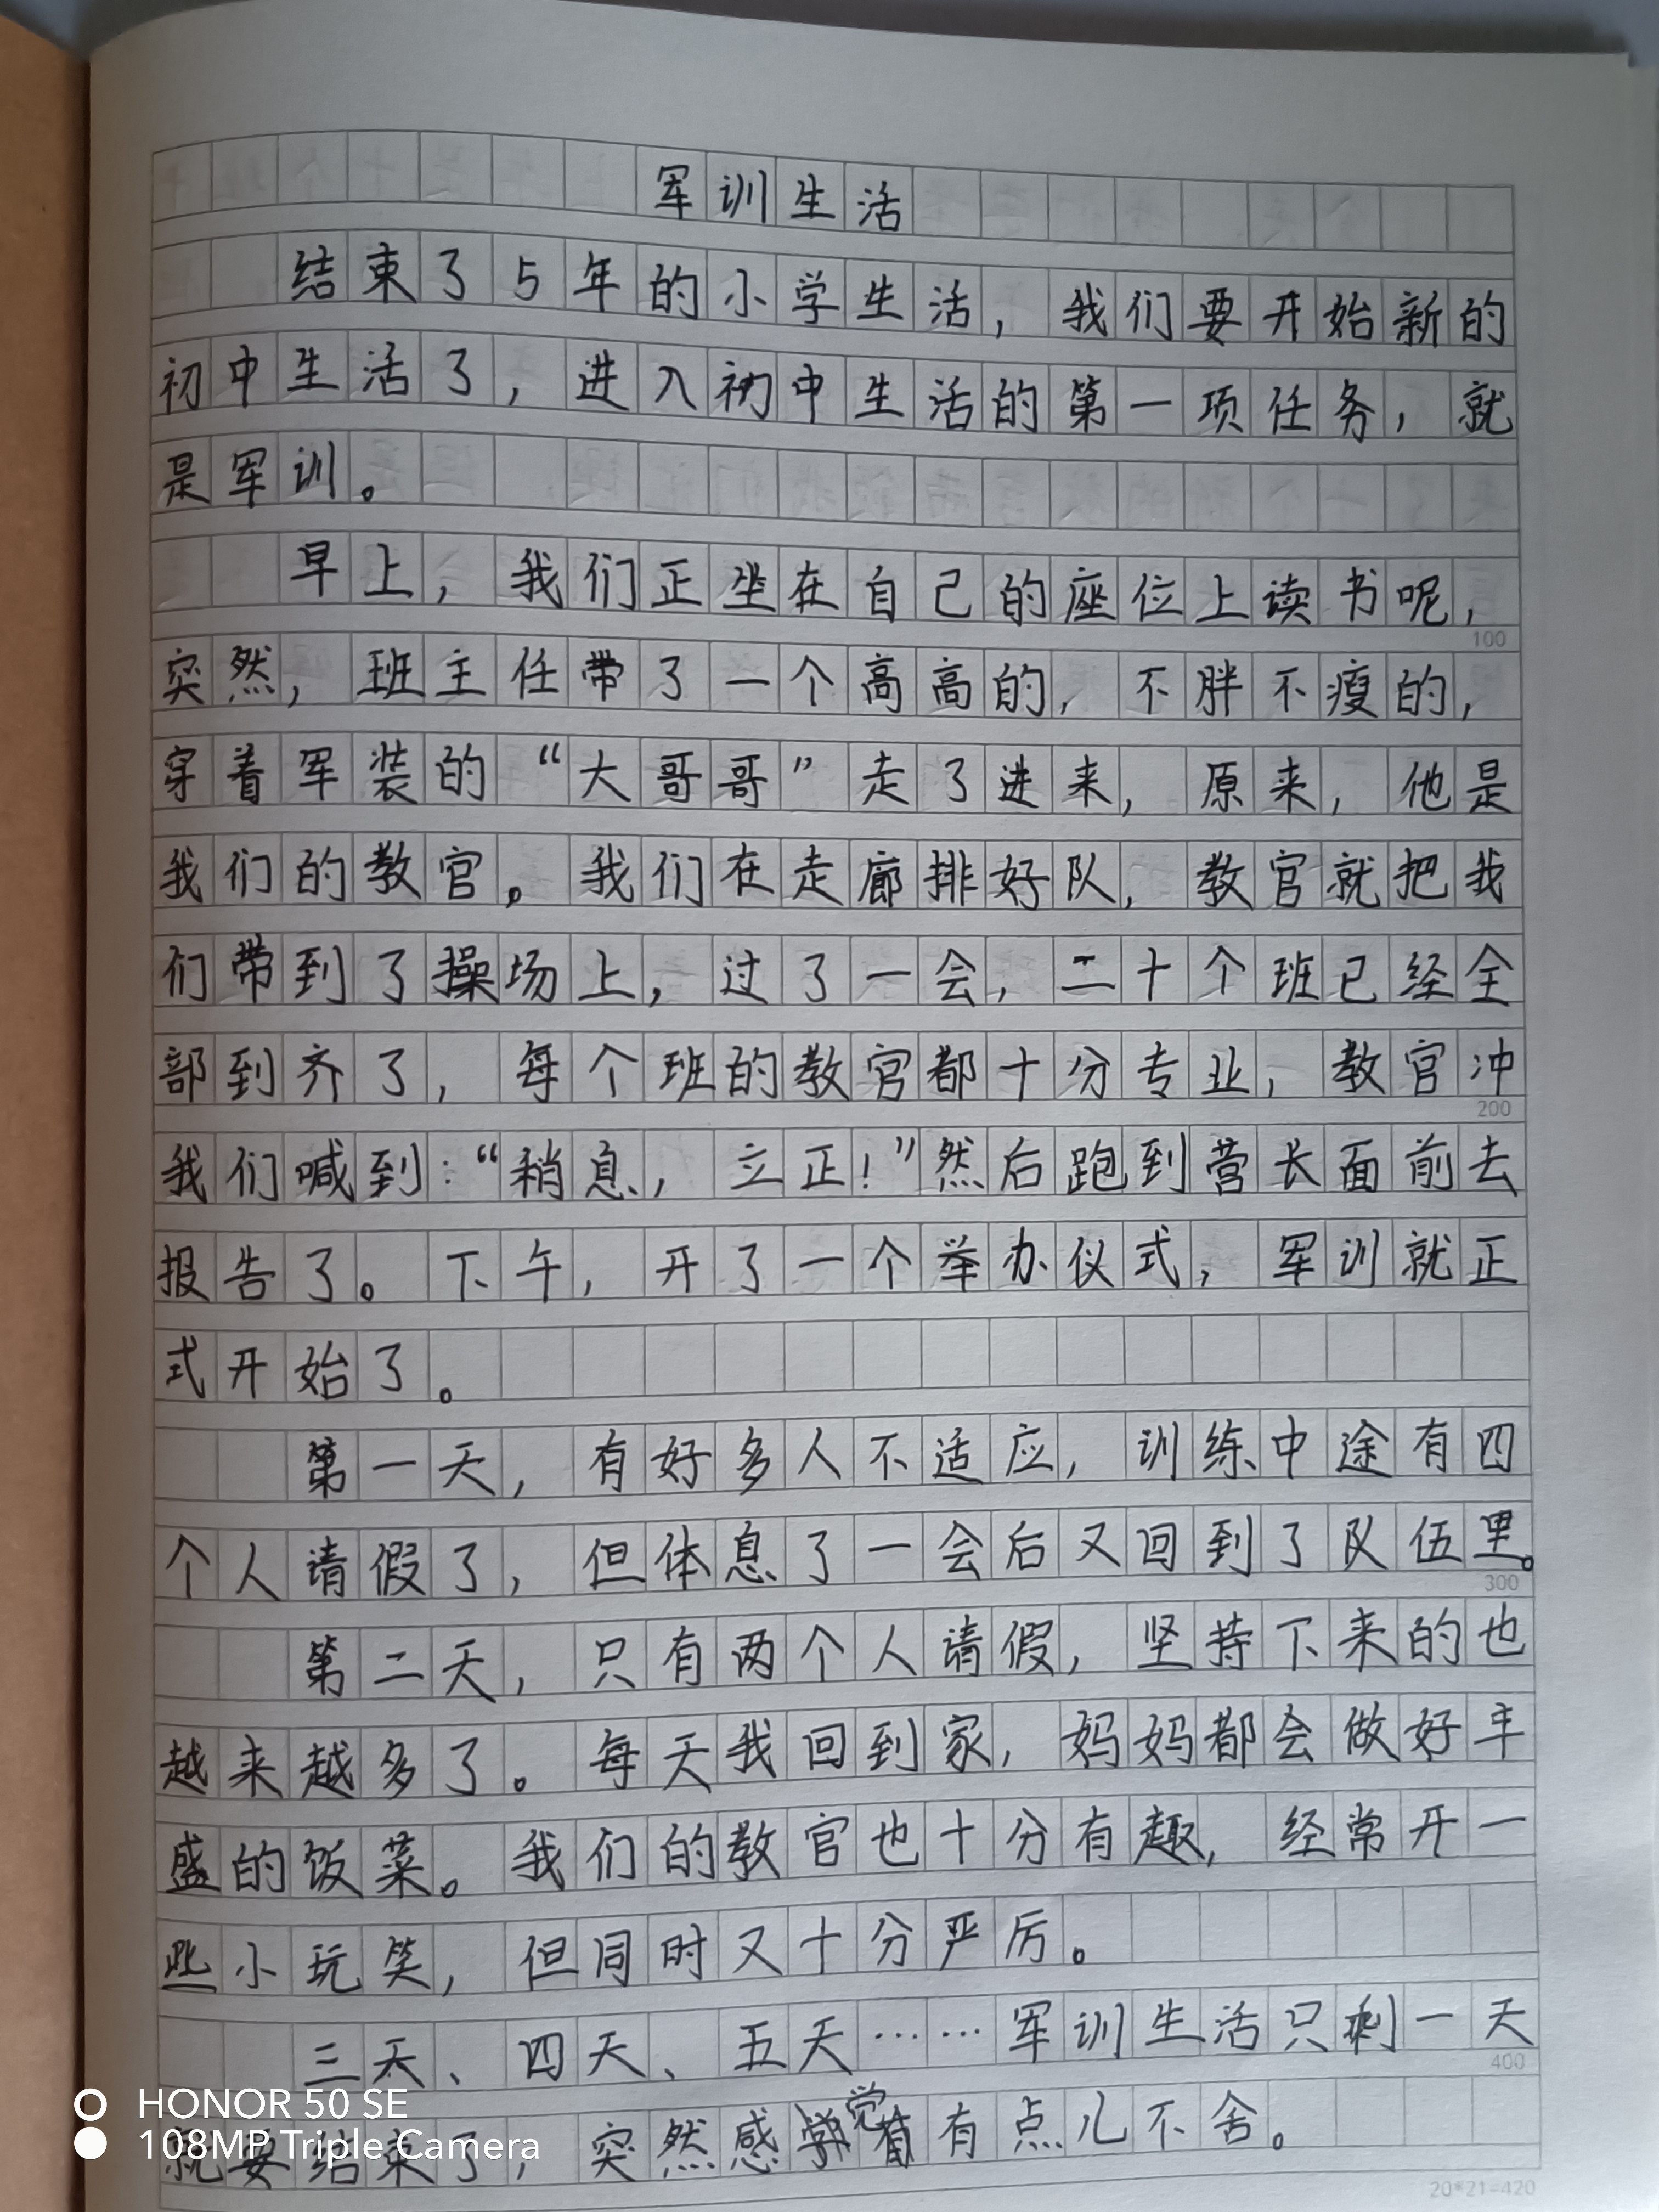 军训生活
结束了5年的小学生活，我们要开始新的
初中生活了，进入初中生活的第一项任务，就
是军训。
早上，我们正坐在自己的座位上读书呢，
100
突然，班主任带了一个高高的，不胖不瘦的，
穿着军装的“大哥哥”走了进来，原来，他是
我们的教官。我们在走廊排好队，教官就把我
们带到了操场上，过了一会，二十个班已经全
部到齐了，每个班的教官都十分专业，教官冲
200
我们喊到：“稍息，立正！”然后跑到营长面前去
报告了。下午，开了一个举办仪式，军训就正
式开始了。
第一天，有好多人不适应，训练中途有四
个人请假了，但体息了一会后又回到了队伍里。
300
第二天，只有两个人请假，坚持下来的也
越来越多了。每天我回到家，妈妈都会做好丰
盛的饭菜。我们的教官也十分有趣，经常开一
些小玩笑，但同时又十分严厉。
三天、四天、五天……军训生活只剩一天
400
就要结束了，突然感觉有点儿不舍。
20*21=420
HONOR 50 SE
108MP Triple Camera